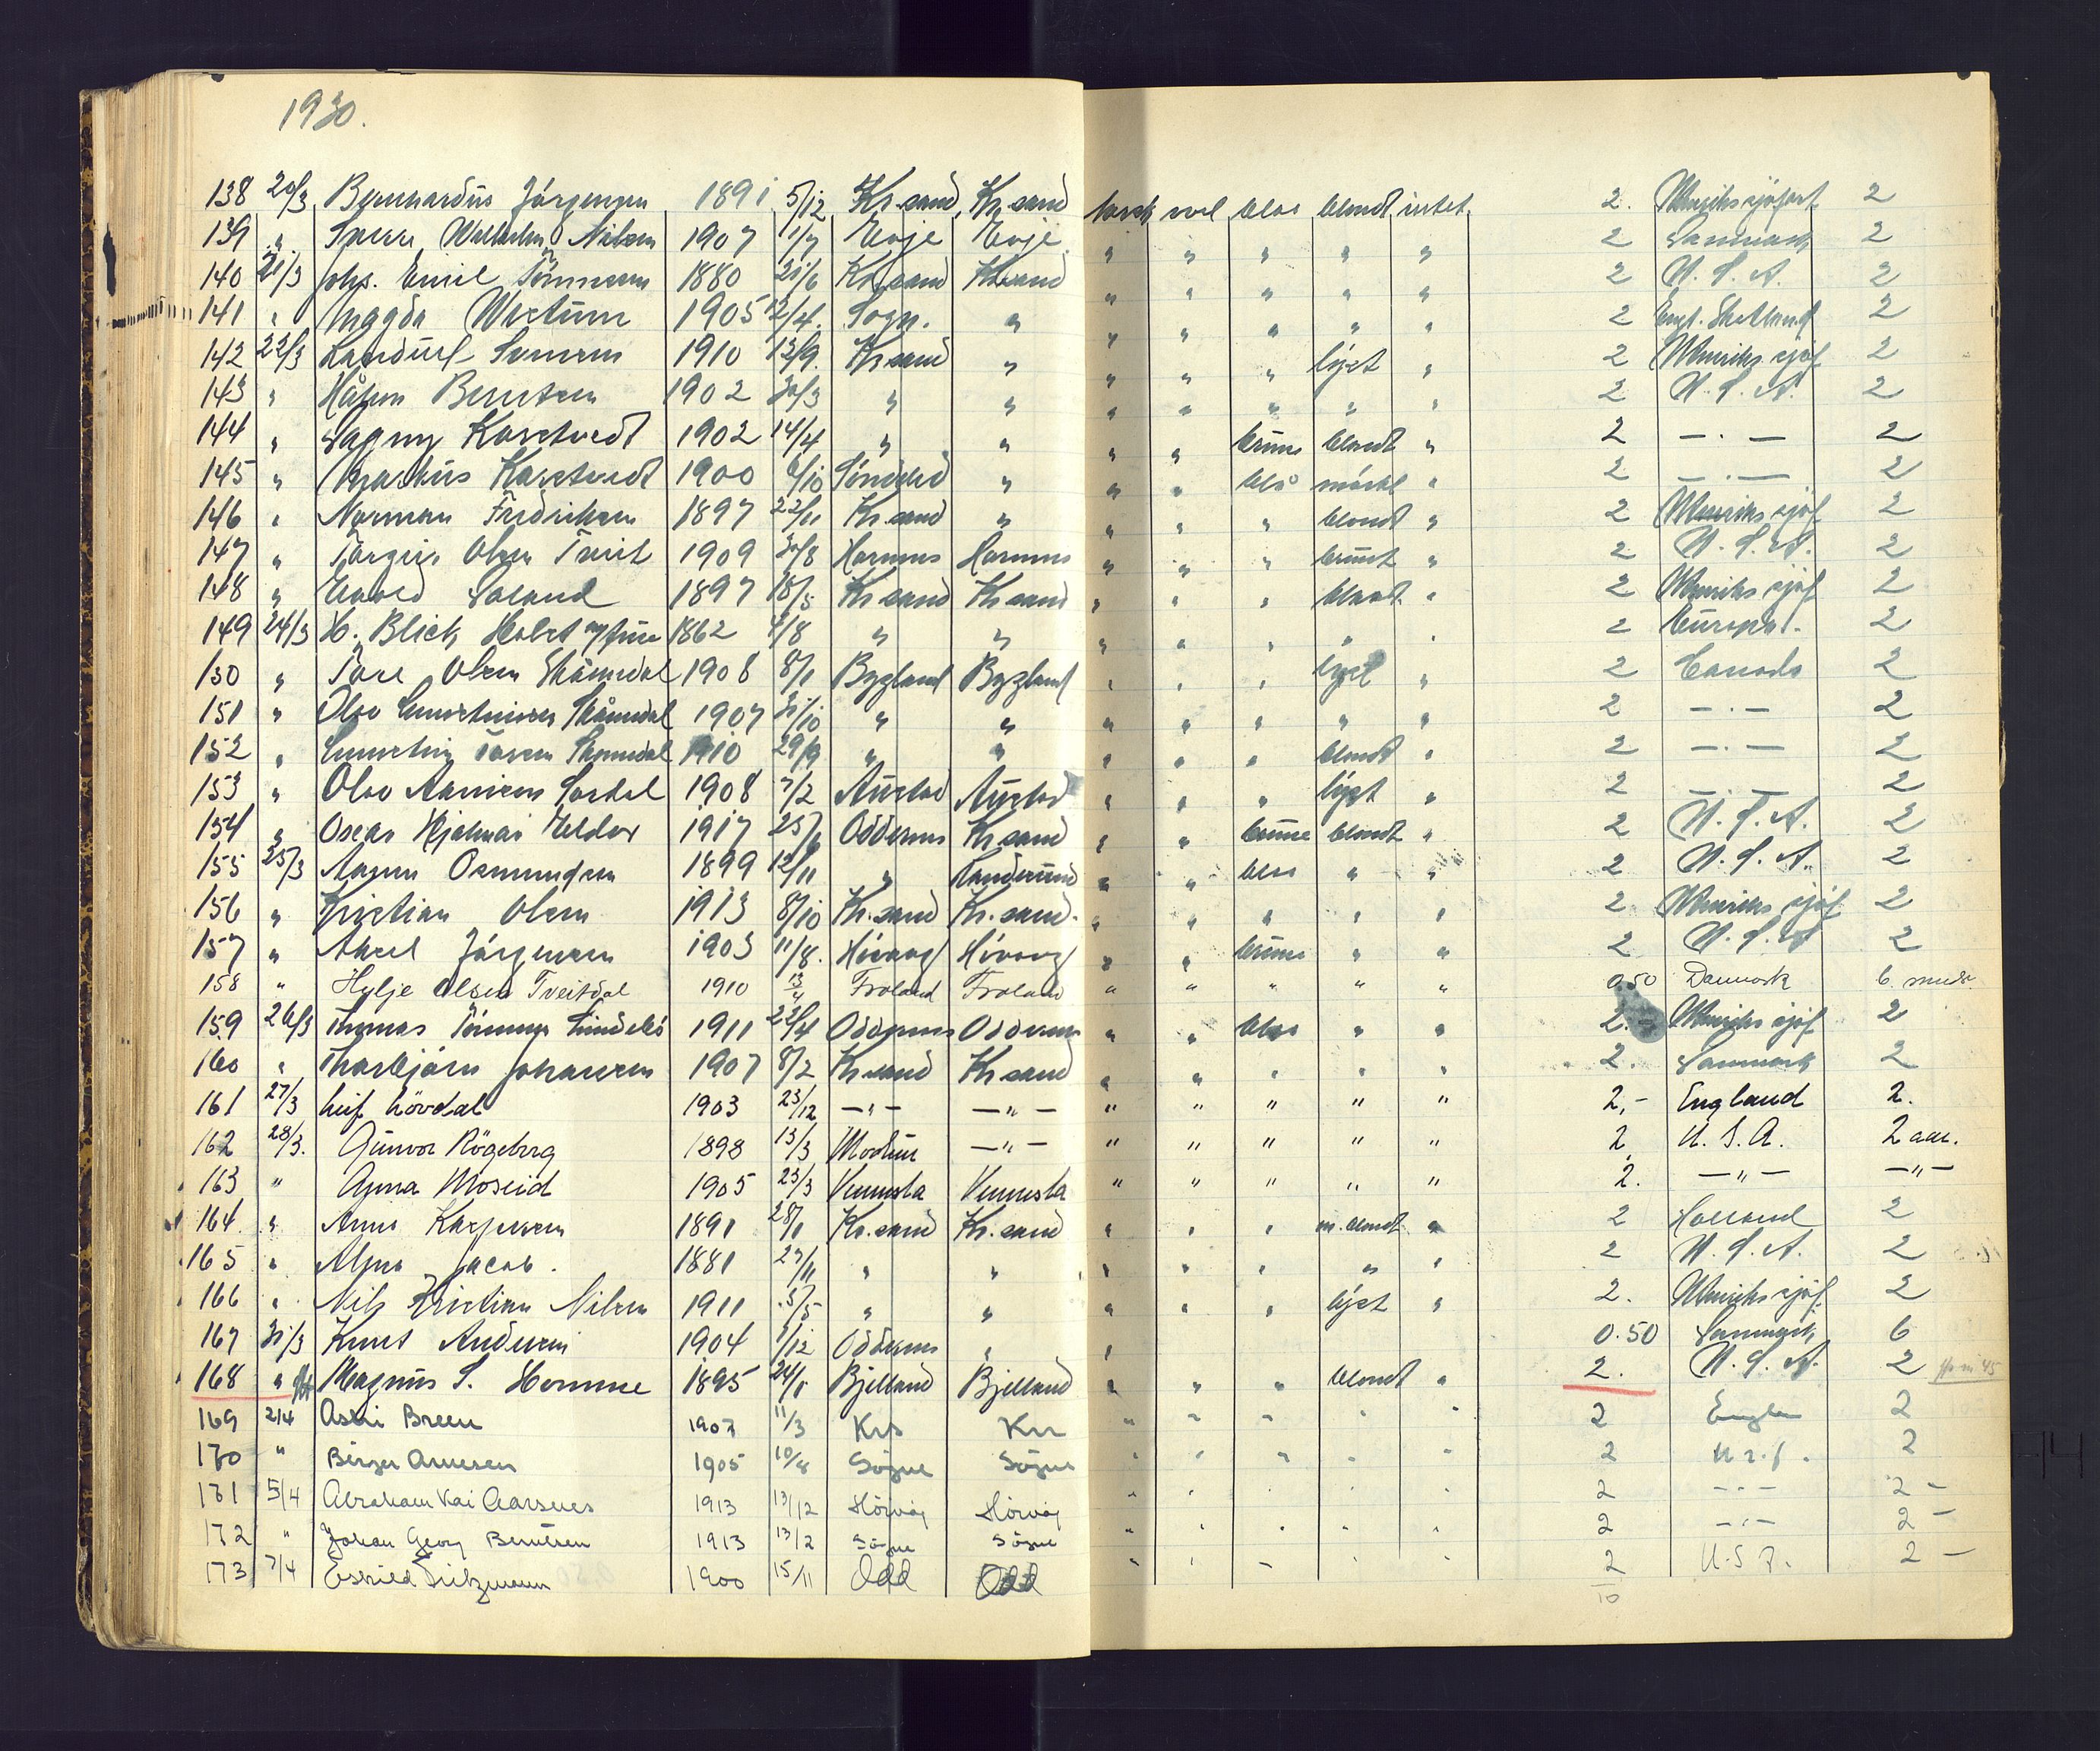 1930.
138 20/3 Bernhardus Jörgensen 1891 5/12 Kr.sand Kr.sand norsk oval blaa blondt intet 2. Utenriks sjöfart 2
139 " Wilhelm Nilsen 1907 1/7 Evje Evje " " " " " 2 Danmark 2
140 21/3 Johs. Emil Tönnesen 1880 21/6 Kr.sand Kr.sand " " " " " 2 U.S.A. 2
141 " Magda 1905 12/4. Sogn. " " " " " " 2 Engl. Shetland 2
142 22/3 1910 12/9. Kr.sand " " " " lyst " 2 Utenriks sjöf 2
143 " Håkon Berntsen 1902 30/3 " " " " " " " 2 U.S.A. 2
144 " Dagny Karstvedt 1902 14/4 " " " " brune blondt " 2 — . — 2
145 " Markus Karstvedt 1900 6/10 Söndeled " " " blå mörkt " 2 — . — 2
146 " Norman Fredriksen 1897 22/11 Kr.sand " " " " blondt " 2 Utenriks sjöf 2
147 " Torgeir Olsen Tveit 1909 30/8 Hornnes Hornnes " " " brunt " 2 U.S.A. 2
148 " Edvard Daland 1897 18/5 Kr.sand Kr.sand " " " blondt. " 2 Utenriks sjöf 2
149 24/3 H. Blich Holst og frue 1862 4/8 " " " " " " " 2 Europa. 2
150 " Tore Olsen Skåmedal 1908 8/1 Bygland Bygland " " " lyst " 2 Canada 2
151 " Olav Gunsteinsen Skåmedal 1907 31/10 " " " " " " " 2 — . — 2
152 " Gunstein Torsen Skåmedal 1910 29/9 " " " " " blondt " 2 — . — 2
153 " Olav Aanensen 1908 7/2 Austad Austad " " " lyst " 2 — . — 2
154 " Oscar Hjalmar 1917 Oddernes Kr.sand " " brune blondt " 2 U.S.A. 2
155 25/3 Aagnes Osmundsen 1899 12/11 " Randesund " " blaa " " 2 U.S.A. 2
156 " Kristian Olsen 1913 8/10 Kr.sand Kr.sand. " " " " " 2 Utenriks sjöf 2
157 " Aksel Jörgensen 1903 11/8. Hövaag Hövaag " " brune " " 2 U.S.A 2
158 " Hylje Olsen Tveitdal 1910 Froland Froland " " " " " 0.50 Danmark 6 mndr.
159 26/3 Thomas Tönnes 1911 22/4 Oddernes Oddernes " " blaa " " 2.- Utenriks sjöf 2
160 " Thorbjörn Johansen 1907 8/2 Kr.sand Kr.sand " " " " " 2. Danmark 2
161 27/3 Leif Lövdal 1903 23/12 — " — — " — " " " " " 2,- England 2.
162 28/3. Gunvor Rögeberg 1898 13/3 Modum — " — " " " " " 2 U.S.A. 2 aar.
163 " Agna Moseid 1905 23/3 Vennesla Vennesla " " " " " 2. — " — — " —
164 " Anna Kaspersen 1891 28/1 Kr.sand Kr.sand " " " m.blondt " 2 Holland 2
165 " Jacob. 1881 27/11 " " " " " " " 2 U.S.A. 2
166 " Nils Kristian Nilsen 1911 5/5 " " " " " lyst " 2. Utenriks sjöf. 2
167 31/3 Knut Andersen 1904 1/12 Oddernes " " 0.50 Danmark 6
168 " Magnus S. Homme 1895 24/1 Bjelland Bjelland " " " blondt " 2. U.S.A. 2
169 2/4 Breen 1907 11/3 Krs Krs " " " " " 2 Engla 2
170 " Birger Arnesen 1905 10/8 Sögne Sögne " " " " " 2 U.S.A. 2
171 5/4 Abraham Kai Aarsnes 1913 13/12 Hövåg Hövåg " " " " " 2 — . — 2 –
172 " Johan Georg Berntsen 1913 13/2 Sögne Sögne " " " " " 2 — . — 2 –
173 7/4 1900 15/11 Odd Odd " " " " " 2 U.S.A. 2 –
10